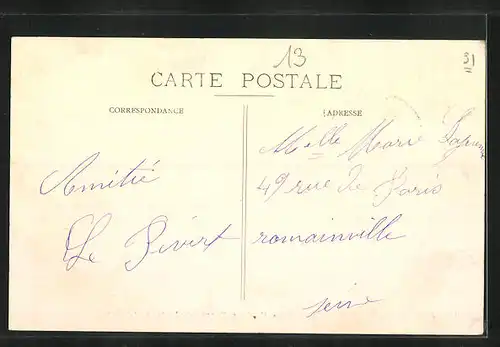 13
31
CARTE POSTALE
CORRESPONDANCE
ADRESSE
Melle Marie
49 rue de Paris
romainville
seine
Amitié
Le